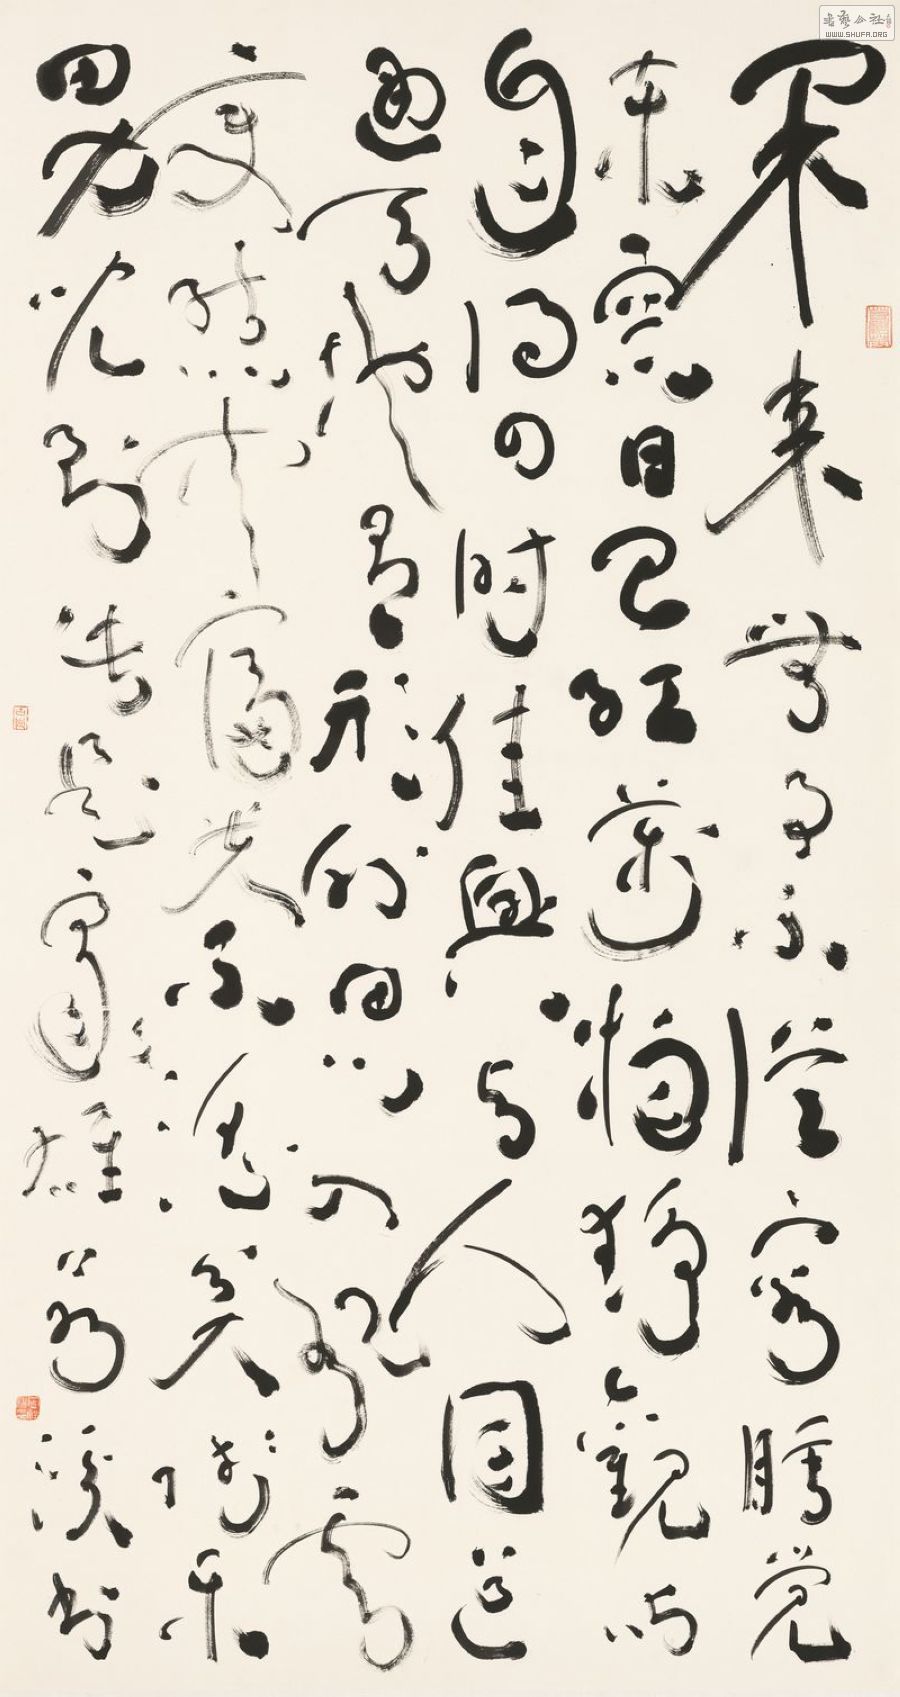 閑来無事不從容睡覺
東窗日已紅萬物靜觀皆
自得四時佳興与人同道
通天地有形外思入風雲
變態中富貴不淫貧賤樂
男兒到此是豪雄 溪书
書藝公社
WWW.SHUFA.ORG